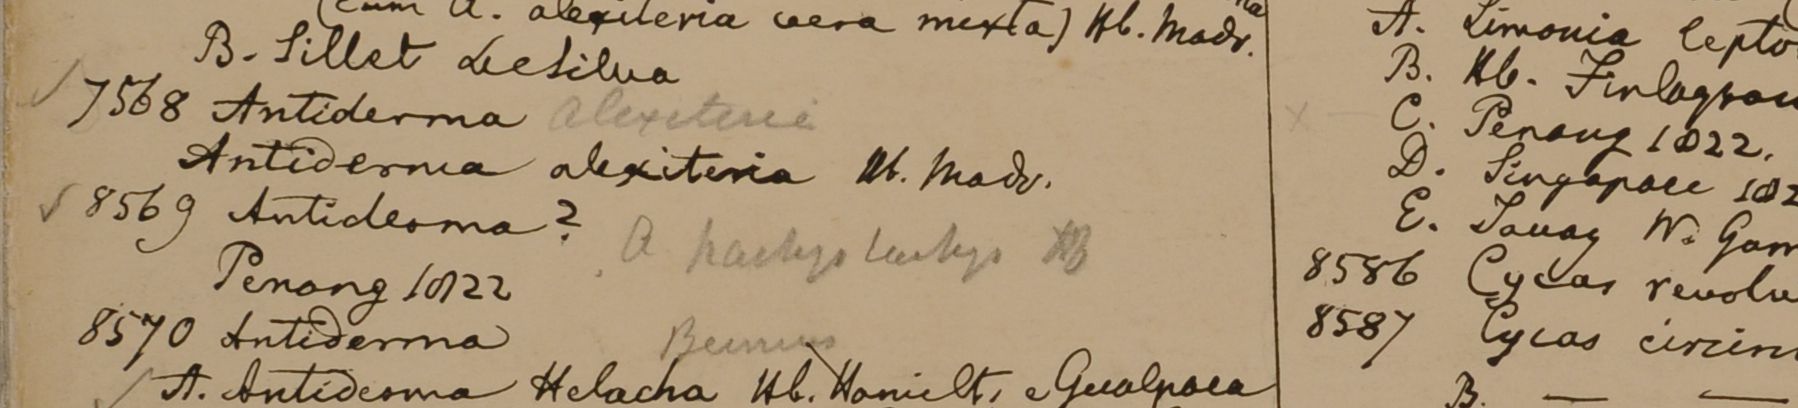 (cum A. alexiteria vera mixta) Hb. Madr.
B. Sillet DeSilva
7568 Antiderma alexiteria
Antiderma alexiteria Hb. Madr.
8569 Antidesma? A pachystachys HB
Penang 1822
8570 Antiderma
A. Antidesma Helacha Hb. Hamilt. e Gualpara
A. Limonia lepto
B. Hb. Finlayson
C. Penang 1822.
D. Singapore 182
E. Tavay W. Gom
8586 Cycas revolu
8587 Cycas circin
B. — —